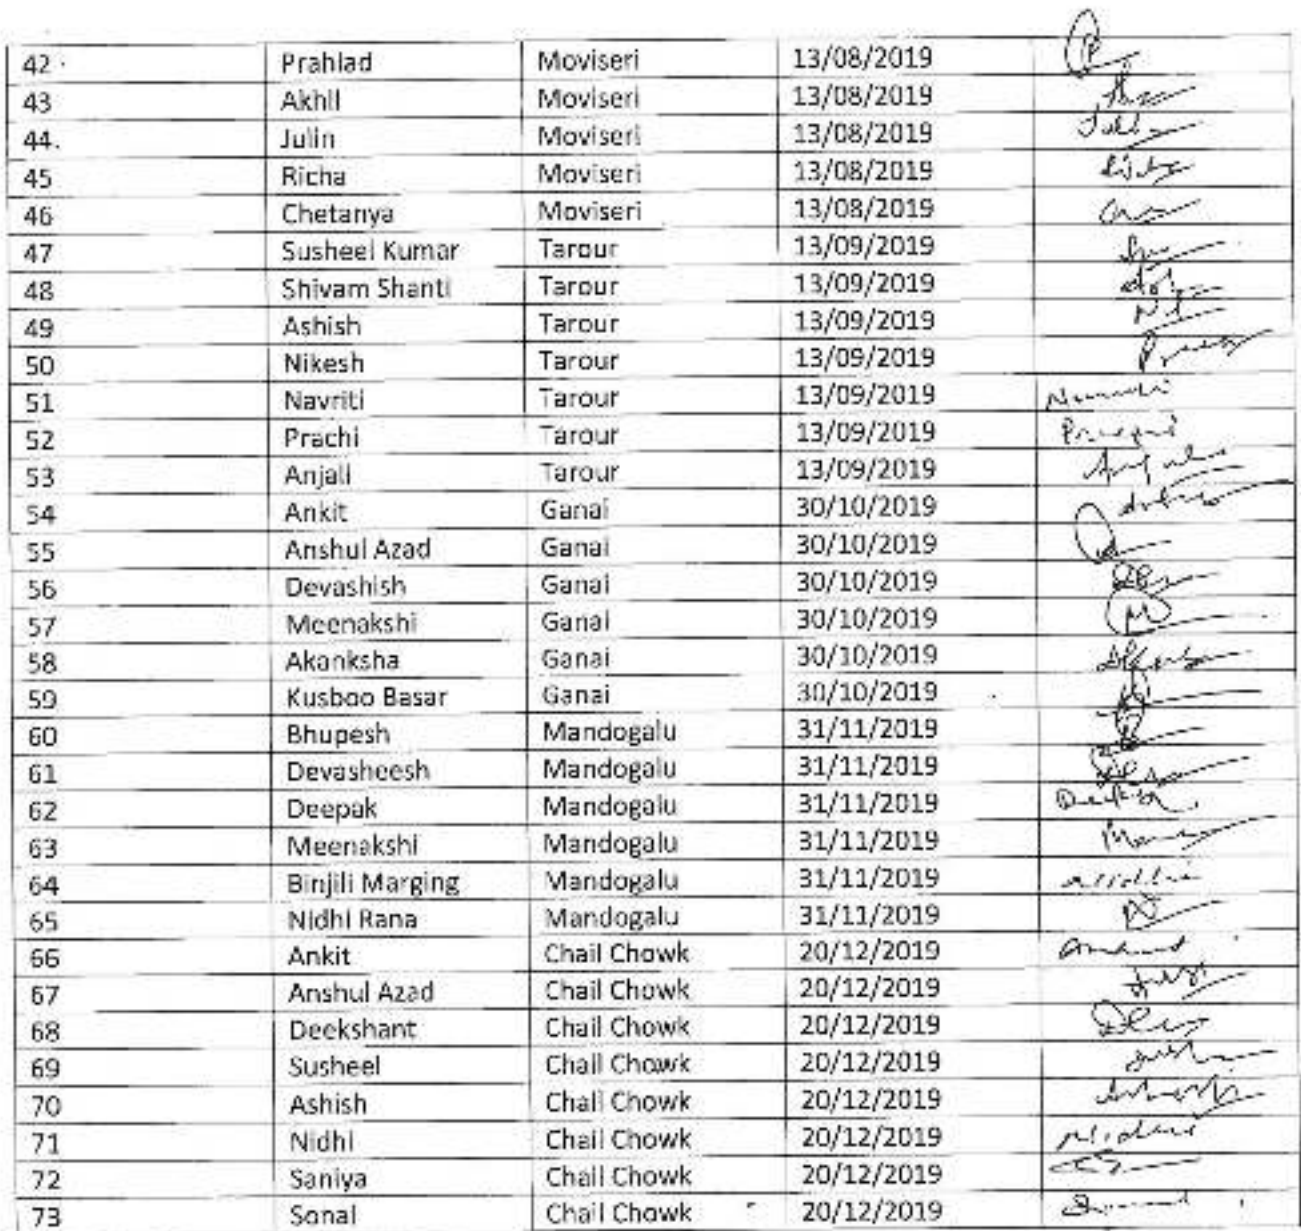 42 . Prahlad Moviseri 13/08/2019
43 Akhil Moviseri 13/08/2019
44. Julin Moviseri 13/08/2019
45 Richa Moviseri 13/08/2019
46 Chetanya Moviseri 13/08/2019
47 Susheel Kumar Tarour 13/09/2019
48 Shivam Shanti Tarour 13/09/2019
49 Ashish Tarour 13/09/2019
50 Nikesh Tarour 13/09/2019
51 Navriti Tarour 13/09/2019
52 Prachi Tarour 13/09/2019
53 Anjali Tarour 13/09/2019
54 Ankit Ganai 30/10/2019
55 Anshul Azad Ganai 30/10/2019
56 Devashish Ganai 30/10/2019
57 Meenakshi Ganai 30/10/2019
58 Akanksha Ganai 30/10/2019
59 Kusboo Basar Ganai 30/10/2019
60 Bhupesh Mandogalu 31/11/2019
61 Devasheesh Mandogalu 31/11/2019
62 Deepak Mandogalu 31/11/2019
63 Meenakshi Mandogalu 31/11/2019
64 Binjili Marging Mandogalu 31/11/2019
65 Nidhi Rana Mandogalu 31/11/2019
66 Ankit Chail Chowk 20/12/2019
67 Anshul Azad Chail Chowk 20/12/2019
68 Deekshant Chail Chowk 20/12/2019
69 Susheel Chail Chowk 20/12/2019
70 Ashish Chail Chowk 20/12/2019
71 Nidhi Chail Chowk 20/12/2019
72 Saniya Chail Chowk 20/12/2019
73 Sonal Chail Chowk 20/12/2019